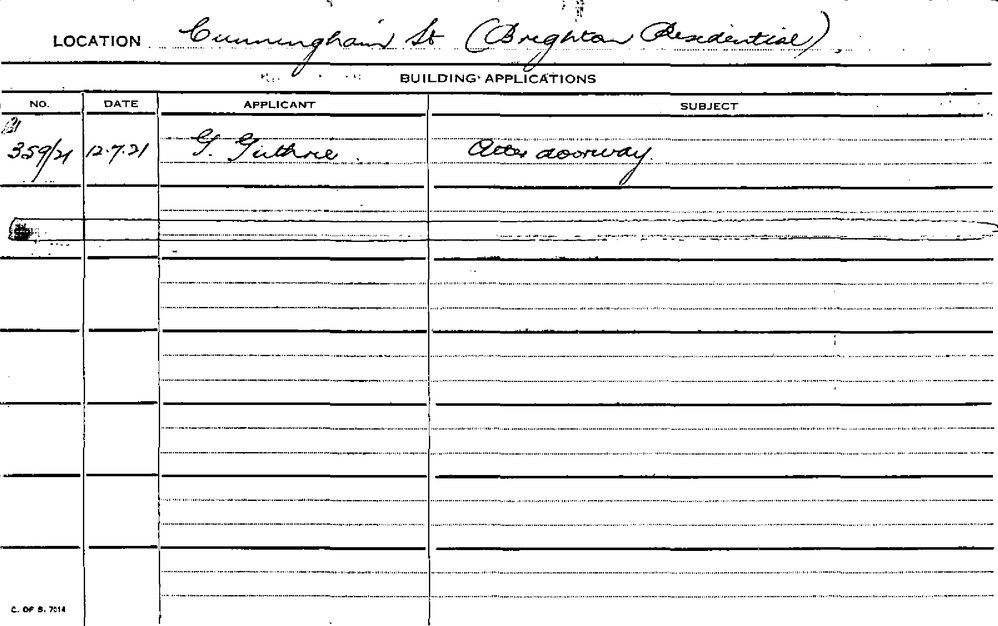 LOCATION Cunningham St (Brighton Residential).
BUILDING APPLICATIONS
NO. DATE APPLICANT SUBJECT
359/21 12.7.21 G. Guthrie. Alter doorway.
C. OF S. 7014